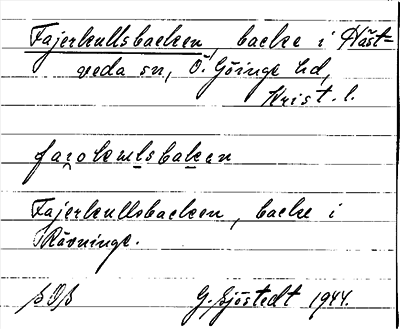 Fajerkullsbacken, backe i Häst-
veda sn, Ö. Göinge hd,
Krist. l.
Fajerkullsbacken, backe i
Rävninge.
G. Sjöstedt 1944.